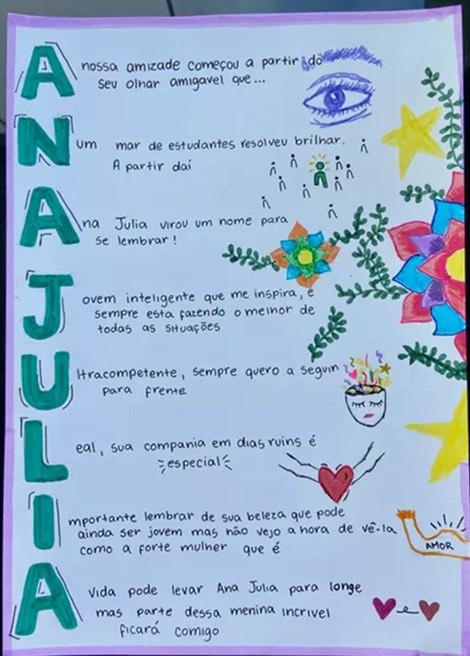 A nossa amizade começou a partir do
seu olhar amigavel que...
Num mar de estudantes resolveu brilhar.
A partir daí
Ana Julia virou um nome para
se lembrar!
Jovem inteligente que me inspira, e
sempre esta fazendo o melhor de
todas as situações
Ultracompetente, sempre quero a seguir
para frente
Leal, sua compania em dias ruins é
especial
Importante lembrar de sua beleza que pode
ainda ser jovem mas não vejo a hora de vê-la
como a forte mulher que é
AMOR
A vida pode levar Ana Julia para longe
mas parte dessa menina incrivel
ficará comigo